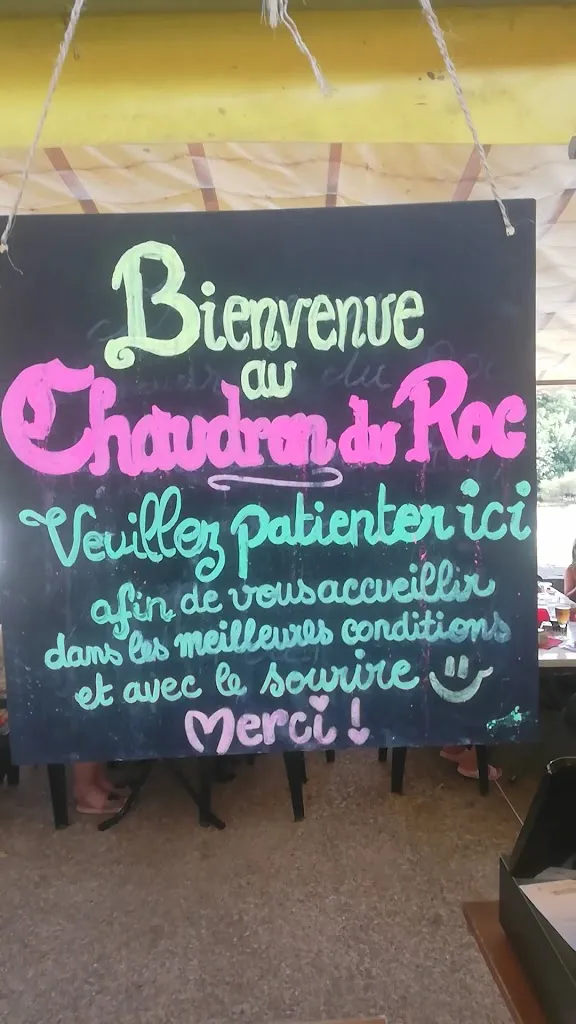 Bienvenue
au
Chaudron du Roc
Veuillez patienter ici
afin de vous accueillir
dans les meilleures conditions
et avec le sourire
Merci !